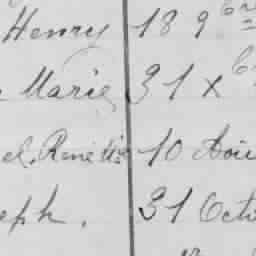 Henry 18 9bre
Marie 31 X
el. René 10 Aoû
eph. 31 Octo